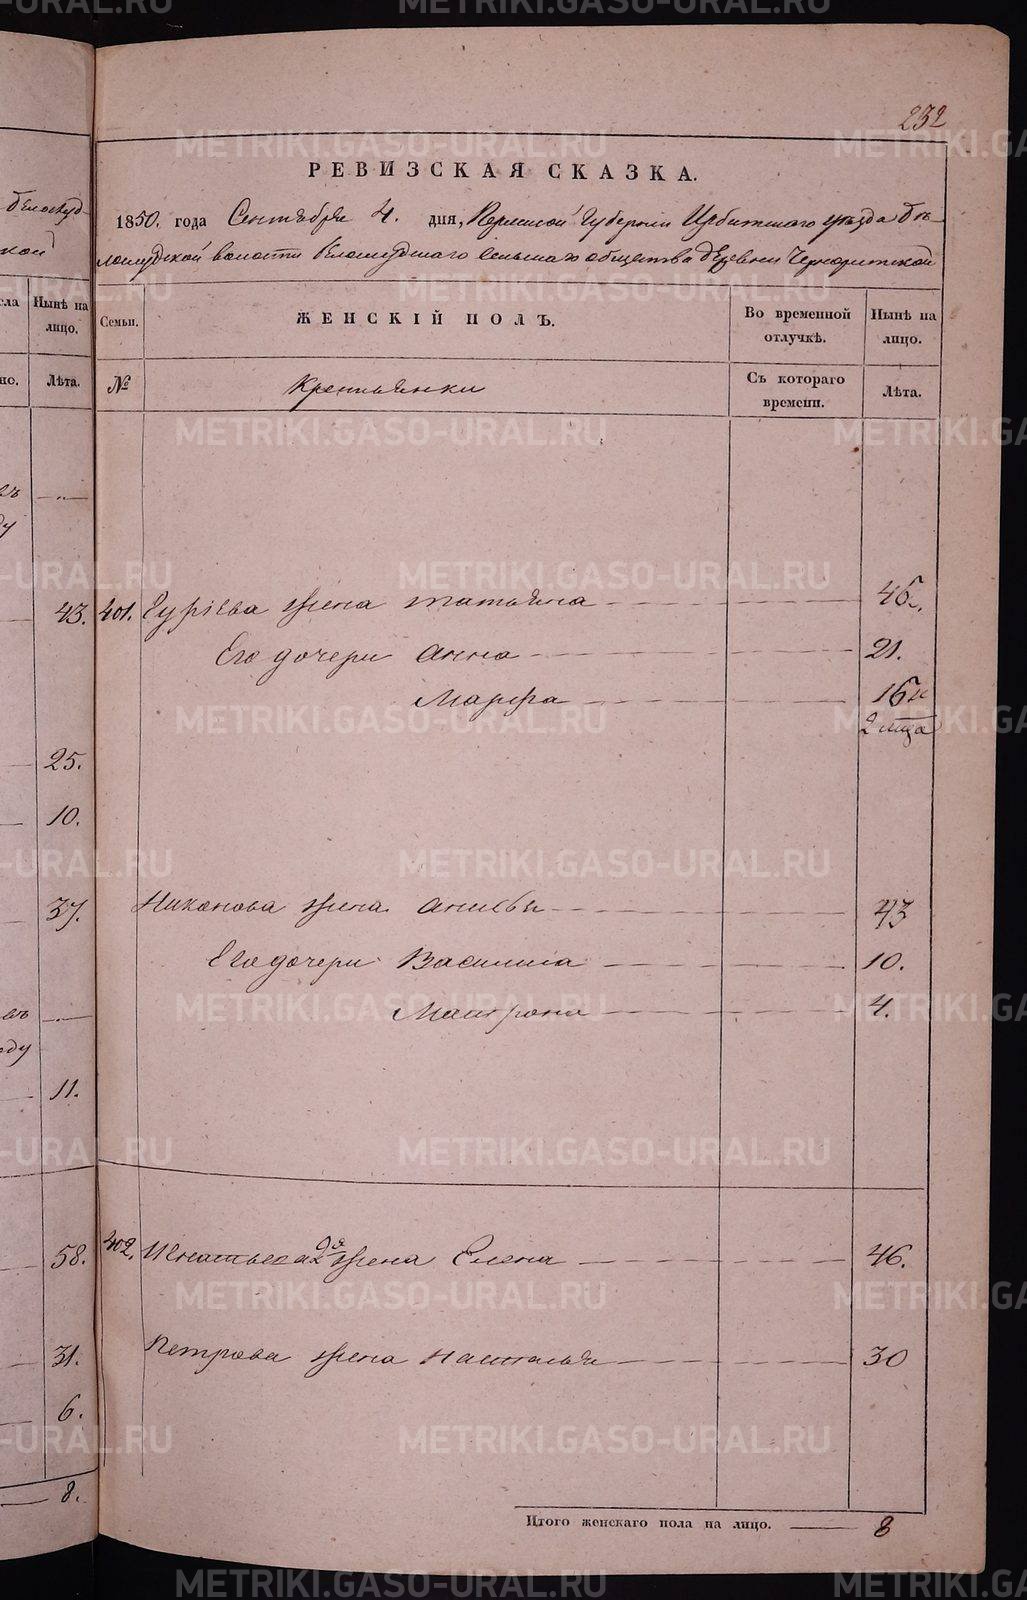 232
РЕВИЗСКАЯ СКАЗКА.
1850. года Сентября 4. дня, Пермской Губернии Ирбитскаго уѣзда Бѣ-
лослудской волости Бѣлослудскаго сельскаго общества деревни
Семьи.
ЖЕНСКІЙ ПОЛЪ.
Во временной отлучкѣ.
Нынѣ на лицо.
№
Крестьянки
Съ котораго времени.
Лѣта.
401. Гурьева жена Татьяна 45.
Его дочери Анна 21.
Марфа 15
2 лица
Никонова жена 43
Его дочери Василиса 10.
Матрона 4.
402. Игнатьева 2я жена Елена 46.
Петрова жена Наталья 30
Итого женскаго пола на лицо. 8
Нынѣ на лицо.
Лѣта.
43.
25.
10.
37.
11.
58.
31.
6.
8.
METRIKI.GASO-URAL.RU